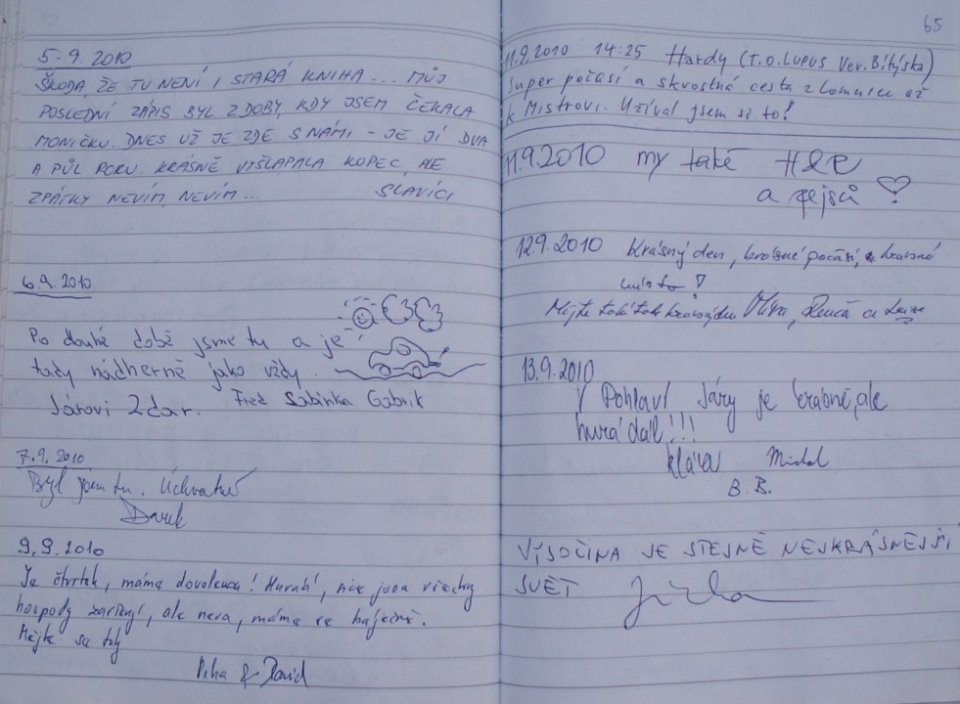 5.9.2010
ŠKODA ŽE TU NENÍ I STARÁ KNIHA... MŮJ
POSLEDNÍ ZÁPIS BYL Z DOBY, KDY JSEM ČEKALA
MONIČKU. DNES UŽ JE ZDE S NÁMI - JE JÍ DVA
A PŮL ROKU. KRÁSNĚ VYŠLAPALA KOPEC, ALE
ZPÁTKY NEVÍM, NEVÍM... SLÁVÍCI
6.9.2010
Po dlouhé době jsme tu a je
tady nádherně jako vždy.
Járovi Zdar. Fred Sabinka Gábrik
7.9.2010
Byl jsem tu. Úchvatné
Darek
9.9.2010
Je čtvrtek, máme dovolenou! Hurah!, jsou všechny
hospody, ale neva, máme se báječně.
Mějte se taky
& David
65
11.9.2010 14:25 Hardy (T.O. LUPUS Ver. Bítýška)
Super počasí a skvostná cesta z Lomnice až
k Mistrovi. Užíval jsem si to!
11.9.2010 my také H&R
a pejsci
12.9.2010 Krásný den, krásné počasí, krásné
místo!
Mějte také tak krásný den Míra, a
13.9.2010
Pohlaví Járy je krásné, ale
hurá dál!!!
Klára Michal
B.B.
VYSOČINA JE STEJNĚ NEJKRÁSNEJŠÍ
SVĚT